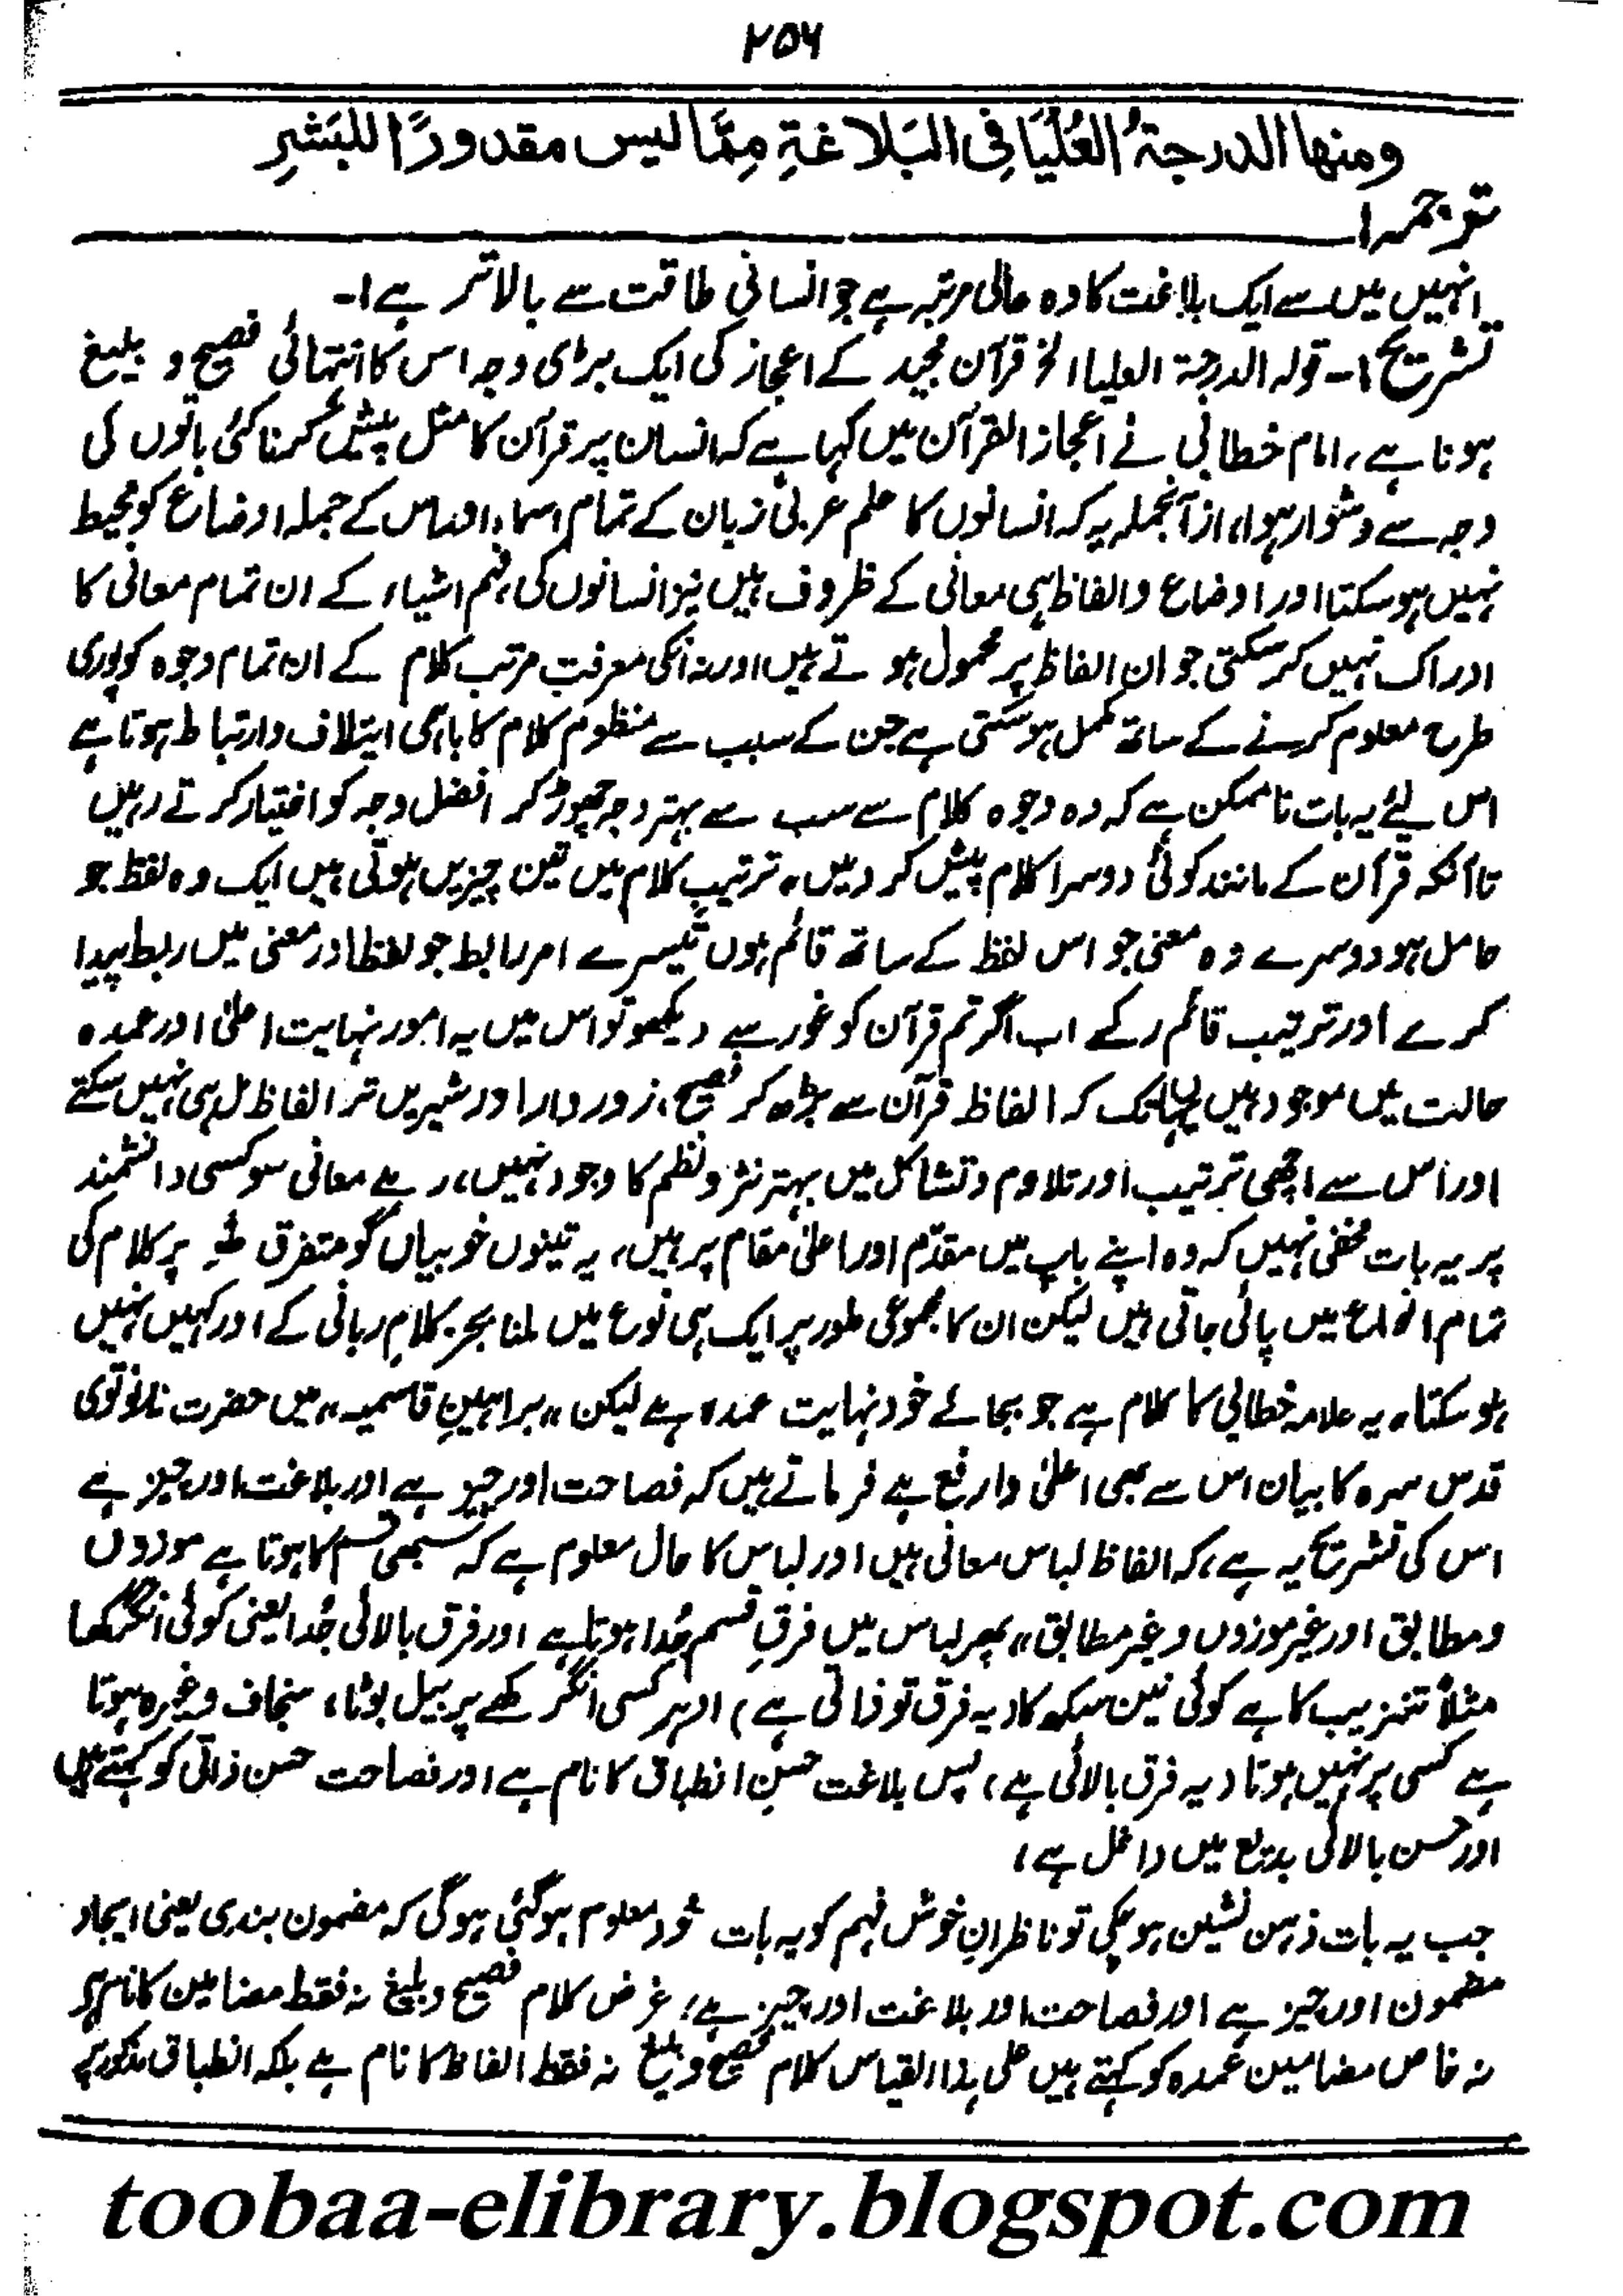 ۲۵۶
ومنها الدرجةُ العُلْيَا فِى البَلاغةِ مِمَّا ليس مقدورًا للبَشرِ
ترجمہ :
انہیں میں سے ایک بلاغت کا وہ عالی مرتبہ ہے جو انسانی طاقت سے بالاتر ہے :۔
تشریح :۔ قولہ الدرجۃ العلیا الخ قرآن مجید کے اعجاز کی ایک بڑی وجہ اس کا انتہائی فصیح و بلیغ
ہونا ہے ، امام خطابی نے اعجاز القرآن میں کہا ہے کہ انسان پر قرآن کا مثل پیش کرنا کئی باتوں کی
وجہ سے دشوار ہوا ، ازآنجملہ یہ کہ انسانوں کا علم عربی زبان کے تمام اسماء اور اس کے جملہ اوضاع کو محیط
نہیں ہو سکتا اور اوضاع و الفاظ ہی معانی کے ظروف ہیں نیز انسانوں کی فہم اشیاء کے ان تمام معانی کا
ادراک نہیں کر سکتی جو ان الفاظ پر محمول ہوتے ہیں اور نہ انکی معرفت مرتب کلام کے ان تمام وجوہ کو پوری
طرح معلوم کرنے کے ساتھ مکمل ہو سکتی ہے جن کے سبب سے منظوم کلام کا باہمی ایتلاف و ارتباط ہوتا ہے
اس لئے یہ بات ناممکن ہے کہ وہ وجوہ کلام سے سب سے بہتر وجہ چھوڑ کر افضل وجہ کو اختیار کرتے رہیں
تاآنکہ قرآن کے مانند کوئی دوسرا کلام پیش کر دیں ، ترتیب کلام میں تین چیزیں ہوتی ہیں ایک وہ لفظ جو
حامل ہو دوسرے وہ معنی جو اس لفظ کے ساتھ قائم ہوں تیسرے امر رابط جو لفظ اور معنی میں ربط پیدا
کرے اور ترتیب قائم رکھے اب اگر تم قرآن کو غور سے دیکھو تو اس میں یہ امور نہایت اعلیٰ اور عمدہ
حالت میں موجود ہیں یہانتک کہ الفاظ قرآن سے بڑھ کر فصیح ، زوردار اور شیریں تر الفاظ مل ہی نہیں سکتے
اور اس سے اچھی ترتیب اور تلاوم و تشاکل میں بہتر نثر و نظم کا وجود نہیں ، رہے معانی سو کسی دانشمند
پر یہ بات مخفی نہیں کہ وہ اپنے باب میں مقدم اور اعلیٰ مقام پر ہیں ، یہ تینوں خوبیاں گو متفرق طور پر کلام کی
تمام انواع میں پائی جاتی ہیں لیکن ان کا مجموعی طور پر ایک ہی نوع میں ملنا بجز کلامِ ربانی کے اور کہیں نہیں
ہو سکتا ، یہ علامہ خطابی کا کلام ہے جو بجائے خود نہایت عمدہ ہے لیکن ,, براہینِ قاسمیہ ,, میں حضرت نانوتوی
قدس سرہ کا بیان اس سے بھی اعلیٰ و ارفع ہے فرماتے ہیں کہ فصاحت اور چیز ہے اور بلاغت اور چیز ہے
اس کی تشریح یہ ہے ، کہ الفاظ لباس معانی ہیں اور لباس کا حال معلوم ہے کہ سبھی قسم کا ہوتا ہے موزوں
و مطابق اور غیر موزوں و غیر مطابق ,, پھر لباس میں فرقِ قسم جُدا ہوتا ہے اور فرق بالائی جُدا یعنی کوئی انگرکھا
مثلاً تنزیب کا ہے کوئی نین سکھ کا (یہ فرق تو ذاتی ہے) اور پھر کسی انگرکھے پر بیل بوٹا ، سنجاف وغیرہ ہوتا
ہے کسی پر نہیں ہوتا (یہ فرق بالائی ہے ، پس بلاغت حسنِ انطباق کا نام ہے اور فصاحت حسن ذاتی کو کہتے ہیں
اور حسن بالائی بدیع میں داخل ہے ،
جب یہ بات ذہن نشین ہو چکی تو ناظرانِ خوش فہم کو یہ بات خود معلوم ہو گئی ہوگی کہ مضمون بندی یعنی ایجاد
مضمون اور چیز ہے اور فصاحت اور بلاغت اور چیز ہے ، غرض کلام فصیح و بلیغ نہ فقط مضامین کا نام ہے
نہ خاص مضامین عمدہ کو کہتے ہیں علی ہذا القیاس کلام فصیح و بلیغ نہ فقط الفاظ کا نام ہے بلکہ انطباق مذکور پر
toobaa-elibrary.blogspot.com